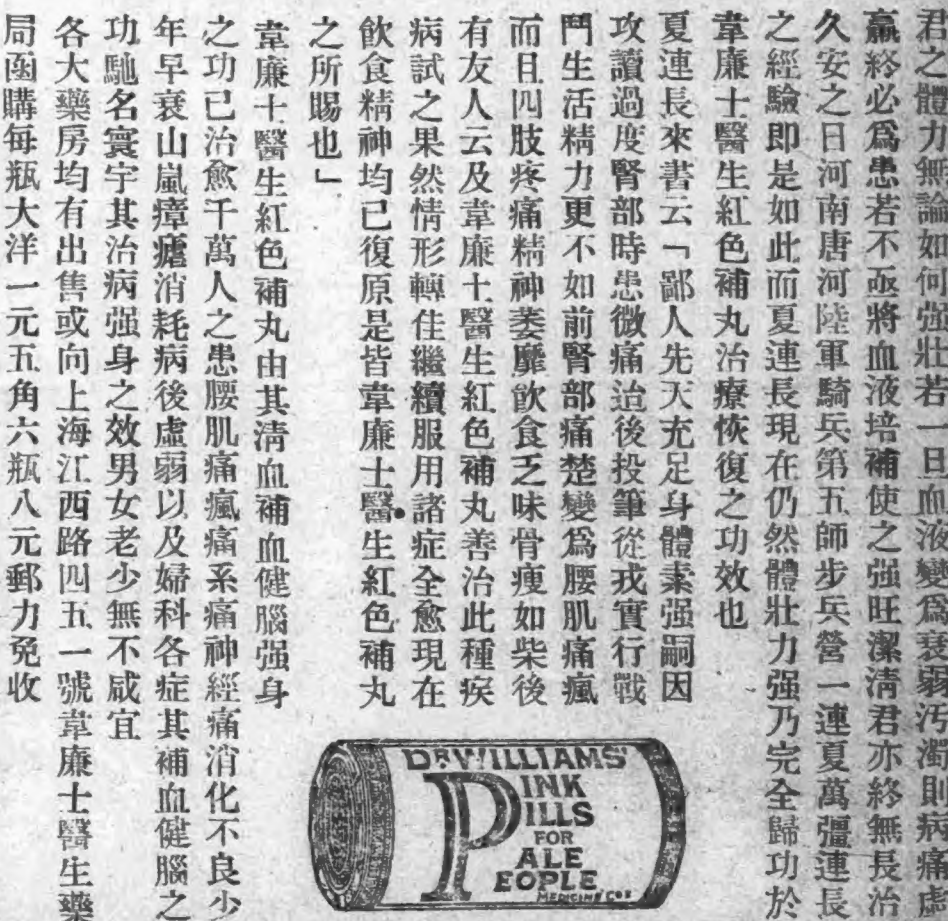 君之體力無論如何强壯若一旦血液變爲衰弱汚濁則病痛虛
羸終必爲患若不亟將血液培補使之强旺潔清君亦終無長治
久安之日河南唐河陸軍騎兵第五師步兵營一連夏萬彊連長
之經驗即是如此而夏連長現在仍然體壯力强乃完全歸功於
韋廉士醫生紅色補丸治療恢復之功效也
夏連長來書云「鄙人先天充足身體素强嗣因
攻讀過度腎部時患微痛迨後投筆從戎實行戰
鬥生活精力更不如前腎部痛楚變爲腰肌痛瘋
而且四肢疼痛精神萎靡飲食乏味骨瘦如柴後
有友人云及韋廉士醫生紅色補丸善治此種疾
病試之果然情形轉佳繼續服用諸症全愈現在
飲食精神均已復原是皆韋廉士醫生紅色補丸
之所賜也」
韋廉士醫生紅色補丸由其清血補血健腦强身
之功已治愈千萬人之患腰肌痛瘋痛系痛神經痛消化不良少
年早衰山嵐瘴瘧消耗病後虛弱以及婦科各症其補血健腦之
功馳名寰宇其治病强身之效男女老少無不咸宜
各大藥房均有出售或向上海江西路四五一號韋廉士醫生藥
局函購每瓶大洋一元五角六瓶八元郵力免收
DR WILLIAMS'
PINK
PILLS
FOR
PALE
PEOPLE
MEDICINE CO.